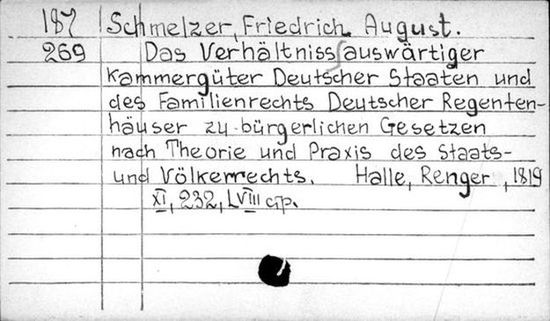 187 Schmelzer, Friedrich August.
269 Das Verhältniss auswärtiger
Kammergüter Deutscher Staaten und
des Familienrechts Deutscher Regenten-
häuser zu bürgerlichen Gesetzen
nach Theorie und Praxis des Staats-
und Völkerrechts. Halle, Renger, 1819
XI, 232, LVIII стр.